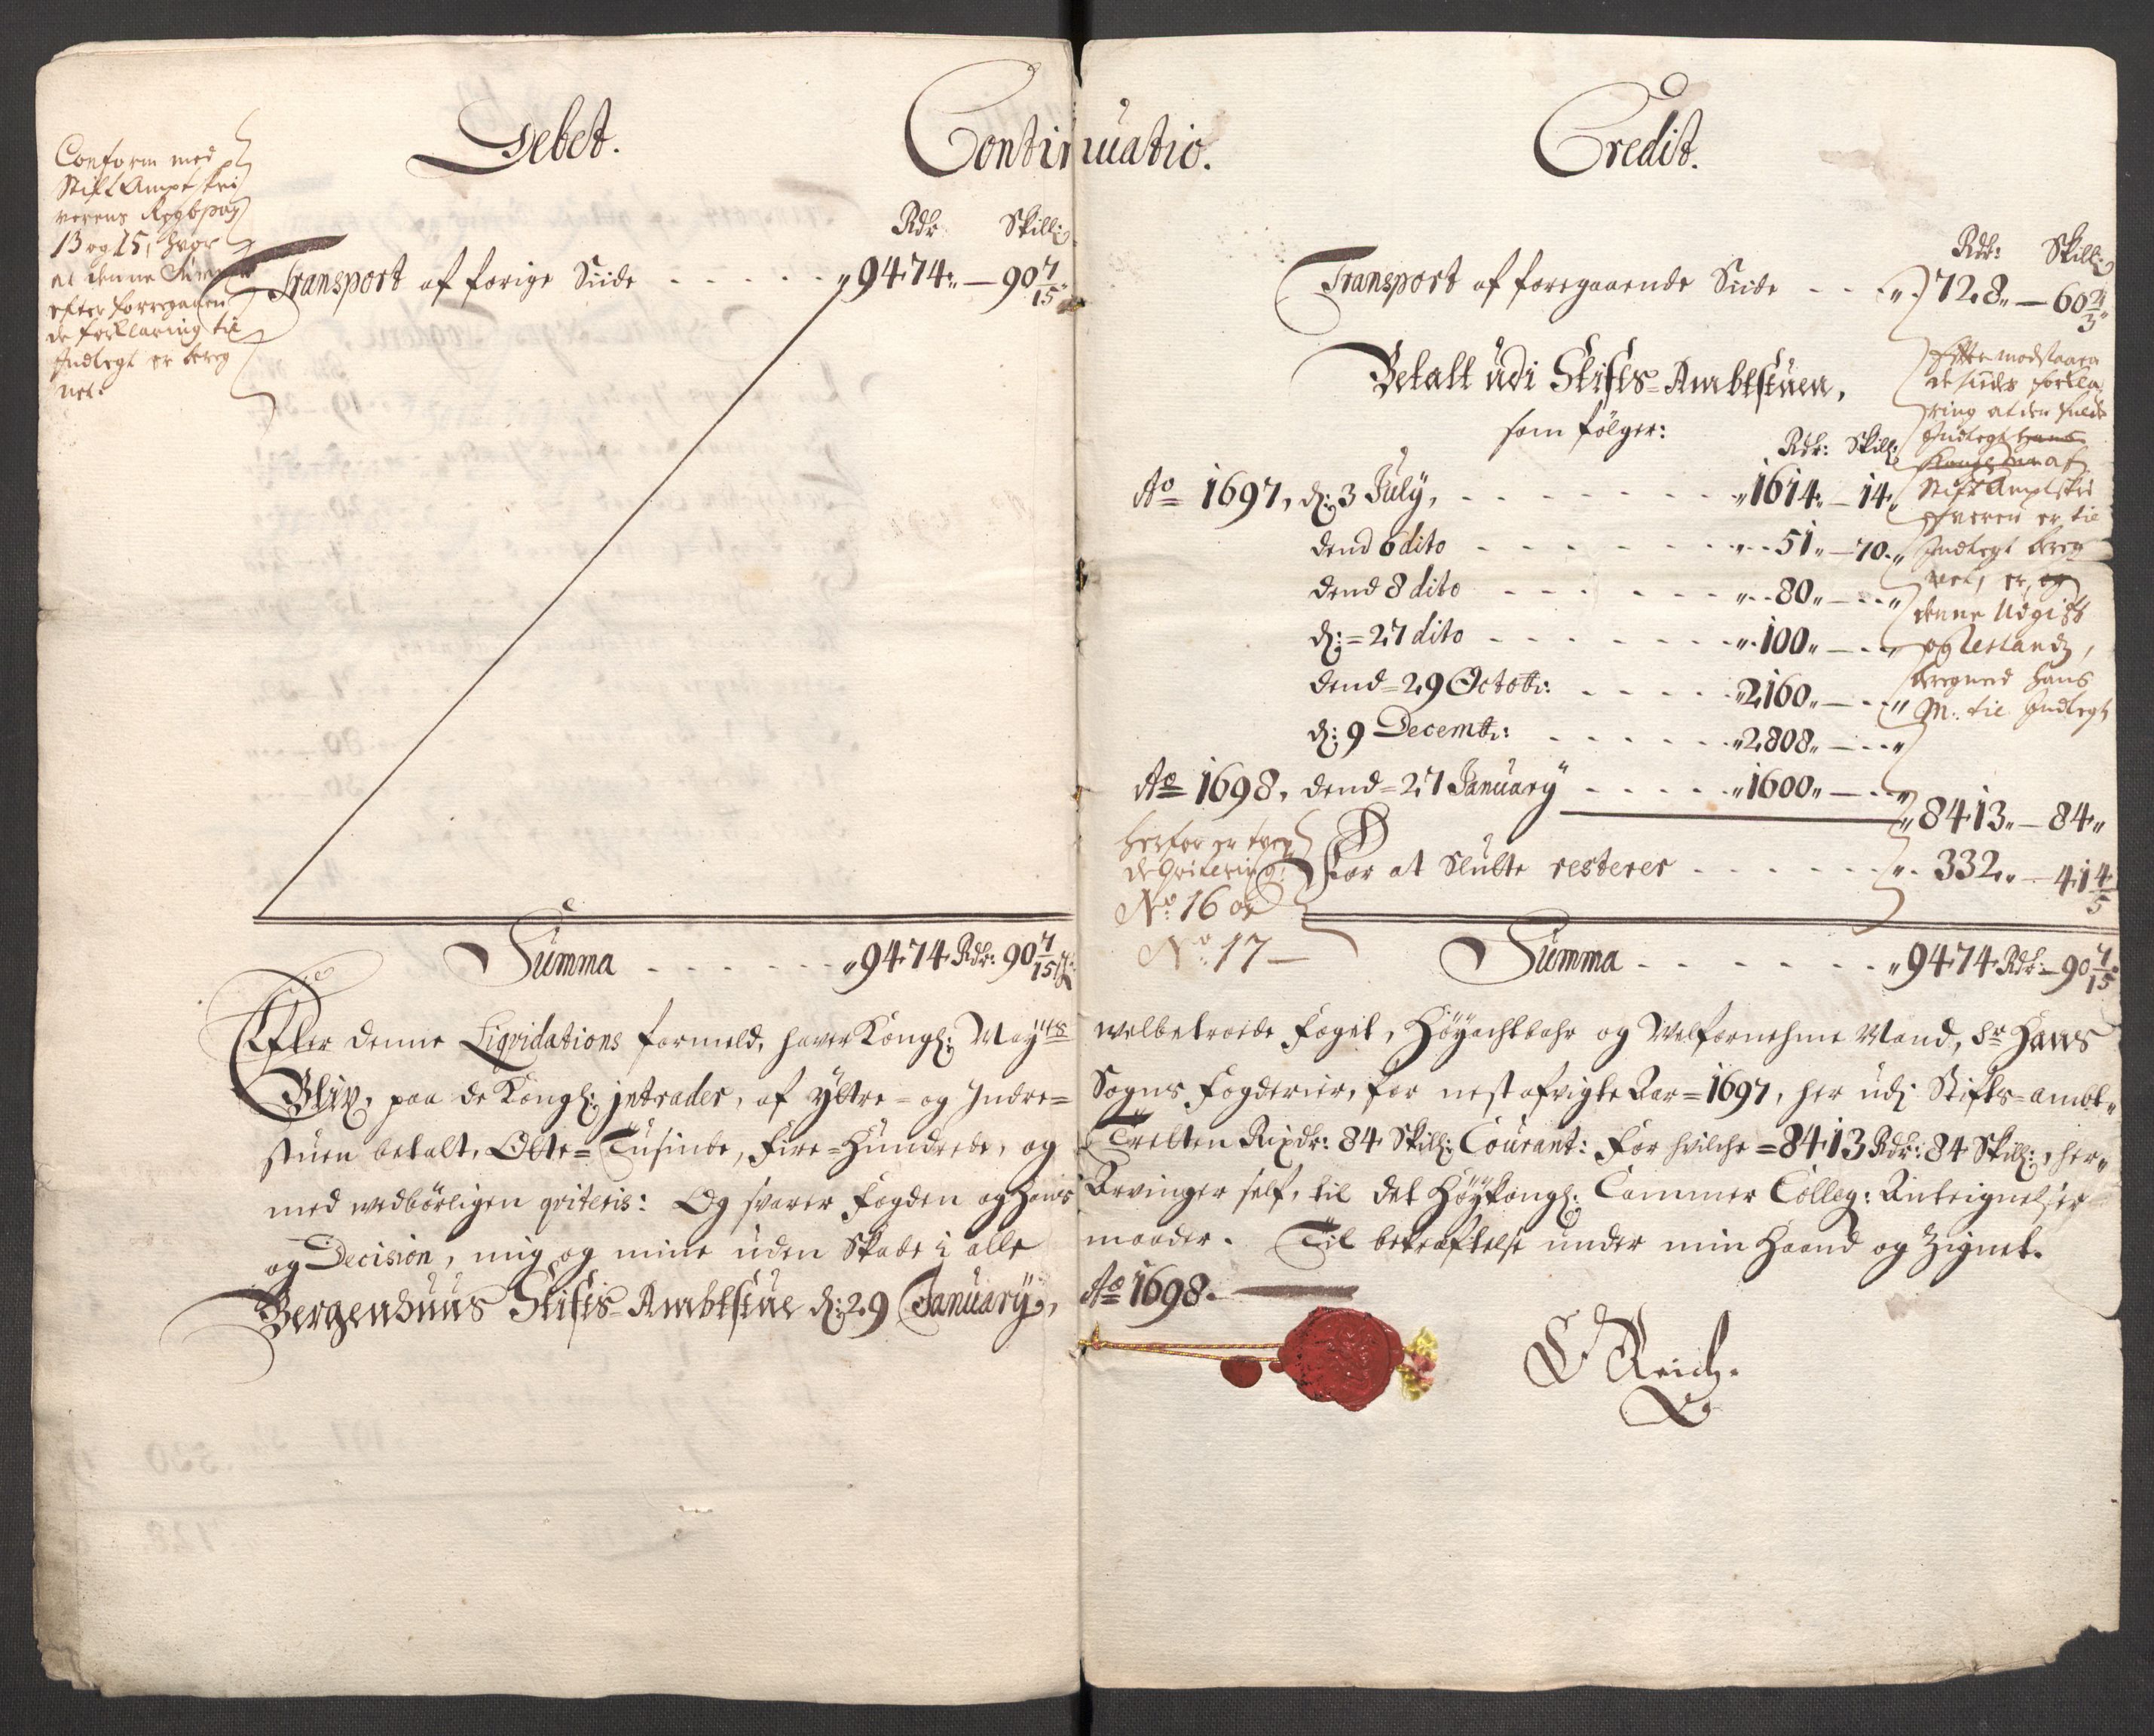 Debet.
Continuatio.
Credit.
Conform med
Stift Ampt skri
verens Regb: pag
13 og 15, hvor
at denne Summa
efter forregaaen
de forklaring til
Indtegt er bereg
net.
Rdr Skill:
Transport af forige Siide - - - - - 9474 — 90 7/15
Summa - - - - - - 9474 Rdr: 90 7/15 s:
Rdr: Skill:
Transport af foregaaende Siide - - - 728 — 60 2/3
Betalt udi Stifts-Ambtstuen,
som følger:
Rdr: Skill:
Ao 1697, d: 3 July, - - - - - - 1614 — 14
dend 6 dito - - - - - - 51 — 70
dend 8 dito - - - - - - 80 — - -
d: = 27 dito - - - - - - 100 — - -
dend = 29 Octobr: - - - - - 2160 — - -
d: 9 Decembr: - - - - - 2808 — - -
Ao 1698, dend = 27 January - - - - - 1600 — - -
8413 — 84
For at Slutte resterer - - - - - - 332 — 41 4/5
Summa - - - - - - 9474 Rdr — 90 7/15
Efter modstaaen
de sides forkla
ring at den fulde
Indtegt
af
Stift Amptskri
fveren er til
Indtegt bereg
net, er og
denne Udgift
og restandz,
beregned hans
M: til Indtegt
herfor er tven
de qvitering:
No: 16 og
No: 17 —
Efter denne Liqvidations formeld, haver Kongl: Mayts welbetroede Foget, Høyachtbahr og Welfornehme Mand, Sr Hans
Blix, paa de Kongl: jntrader, af Yttre- og Indre= Sogns Fogderier, for nest afvigte Aar = 1697, her udj Stifts-ambt-
stuen betalt, Otte= Tusinde, Fire= Hundrede, og Tretten Rixdr: 84 Skill: Courant: For hvilche = 8413 Rdr: 84 Skill:, her-
med wedbørligen qviteris: Og svarer Fogden og hans Arvinger self, til det Høykongl: Cammer Colleg: Anteignelser
og Decision, mig og mine uden Skade i alle maader. Til bekræftelse under min Haand og Zignet.
Bergenhuus Stifts-Ambtstue d: 29 January, Ao 1698.
C Reich.